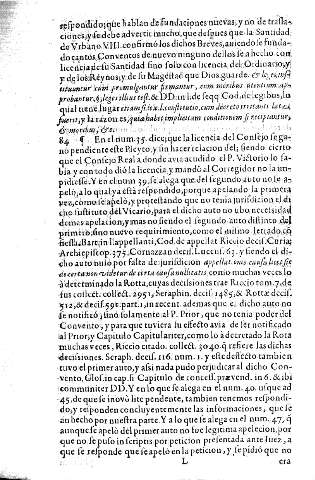 respondido; que hablan de fundaciones nuevas, y no de trasla-
ciones, y se debe advertir mucho, que despues que la Santidad
de Vrbano VIII. confirmò los dichos Breves, aviendose funda-
do tantos Conventos de nuevo ninguno dellos se a hecho con
licencia de su Santidad sino solo con licencia del Ordinario, y
y de los Reynos, y de su Magestad que Dios guarde.
tituuntur cum promulgantur firmantur, cum moribus utentium ap-
probantur, & leges illius tist. & DD. in l. de seqq. Cod. de legibus, lo
qual tiene lugar etiam si sit in Constitutio, cum decreto irritanti lata
fuerit, y la razon es, quia habet implicitam conditionem si recipiantur,
& moribus, &c.
84 ¶ En el num. 35. dice, que la licencia del Consejo se ga-
nò pendiente este Pleyto, y sin hacer relacion del; siendo cierto
que el Consejo Real a donde avia acudido el P. Victorio lo sa-
bia y con todo diò la licencia, y mandò al Corregidor no la im-
pidiesse. Y en el num. 39. se alega que del segundo auto no se a-
pelò, a lo qual ya està respondido, porque apelando la primera
vez, como se apelò, y protestando que no tenia jurisdicion el di
cho sustituto del Vicario, para el dicho auto no ubo necessidad
de mas apelacion, y mas no siendo el segundo auto distinto del
primero, sino nuevo requirimiento, como el mismo letrado, con
fiessa, Bart. in l. appellanti, Cod. de appellat Riccio decif. Curiæ
Archiepiscop. 375. Cornazzan decis. Lucens. 63. y siendo el di-
cho auto nulo por falta de jurisdicion appellat ius casu, licet se
de certa non videtur de certa causa nullitatis como muchas veces lo
à determinado la Rotta, cuyas decisiones trae Riccio tom. 7. de
sus collect. collect. 2957. Seraphin. decis. 1485. & Rotæ decis.
312. & decis. 591. part. 1. in recent. ademas que el dicho auto no
se notificò; sino solamente al P. Prior, que no tenia poder del
Convento, y para que tuviera su efecto avia de ser notificado
al Prior, y Capitulo Capitulariter, como lo à decretado la Rota
muchas veces, Riccio citado. collect. 3040. q̃ refiere las dichas
decisiones. Seraph. decis. 116. num. 1. y este defecto tambien
tuvo el primer auto, y assi nada pudo perjudicar al dicho Con-
vento, Glos. in cap. si Capitulo de concess. prævend. in 6. & ibi
communiter DD. Y en lo que se alega en el num. 40. usque ad
45. de que se inovò lite pendente, tambien tenemos respondi-
do, y responden concluyentemente las informaciones, que se
an hecho por nuestra parte. Y a lo que se alega en el num. 47. q̃
aunque se apelò del primer auto no fue legitima apelacion, por
que no se puso in scriptis por peticion presentada ante Juez, a
que se responde que se apelò en la peticion, y se pidiò que no
L era